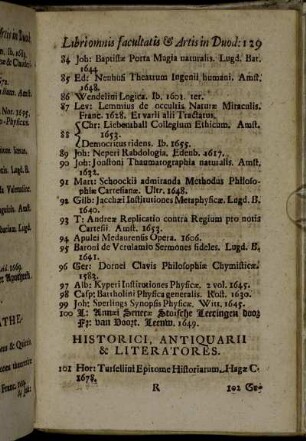 Libri omnis facultatis & Artis in Duod: 129
84 Joh: Baptistæ Porta Magia naturalis. Lugd. Bat.
1644.
85 Ed: Neuhusi Theatrum Ingenii humani. Amst.
1648.
86 Wendelini Logica. Ib. 1601. ter.
87 Lev: Lemnius de occultis Naturæ Miraculis.
Franc. 1628. Et varii alii Tractatus.
88 Chr: Liebenthall Collegium Ethicum. Amst.
1653.
Democritus ridens. Ib. 1655.
89 Joh: Neperi Rabdologia. Edenb. 1617.
90 Joh: Jonstoni Thaumatographia naturalis. Amst.
1632.
91 Mart Schoockii admiranda Methodus Philoso-
phiæ Cartesianæ. Ultr. 1648.
92 Gilb: Jacchæi Institutiones Metaphysicæ. Lugd. B.
1640.
93 T: Andreæ Replicatio contra Regium pro notis
Cartesii. Amst. 1653.
94 Apulei Medaurensis Opera. 1606.
95 Baroni de Verulamio Sermones fideles. Lugd. B.
1641.
96 Ger: Dornei Clavis Philosophiæ Chymisticæ.
1583.
97 Alb: Kyperi Institutiones Physicæ. 2 vol. 1645.
98 Casp: Bartholini Physica generalis. Rost. 1630.
99 Joh: Sperlings Synopsis Physicæ. Witt. 1645.
100 L: Annæi Senecæ Stoische Leeringen door
Fr: van Hoogt. Leeuw. 1649.
HISTORICI, ANTIQUARII
& LITERATORES.
101 Hor: Tursellini Epitome Historiarum. Hagæ C.
1678.
R 102 Ge-